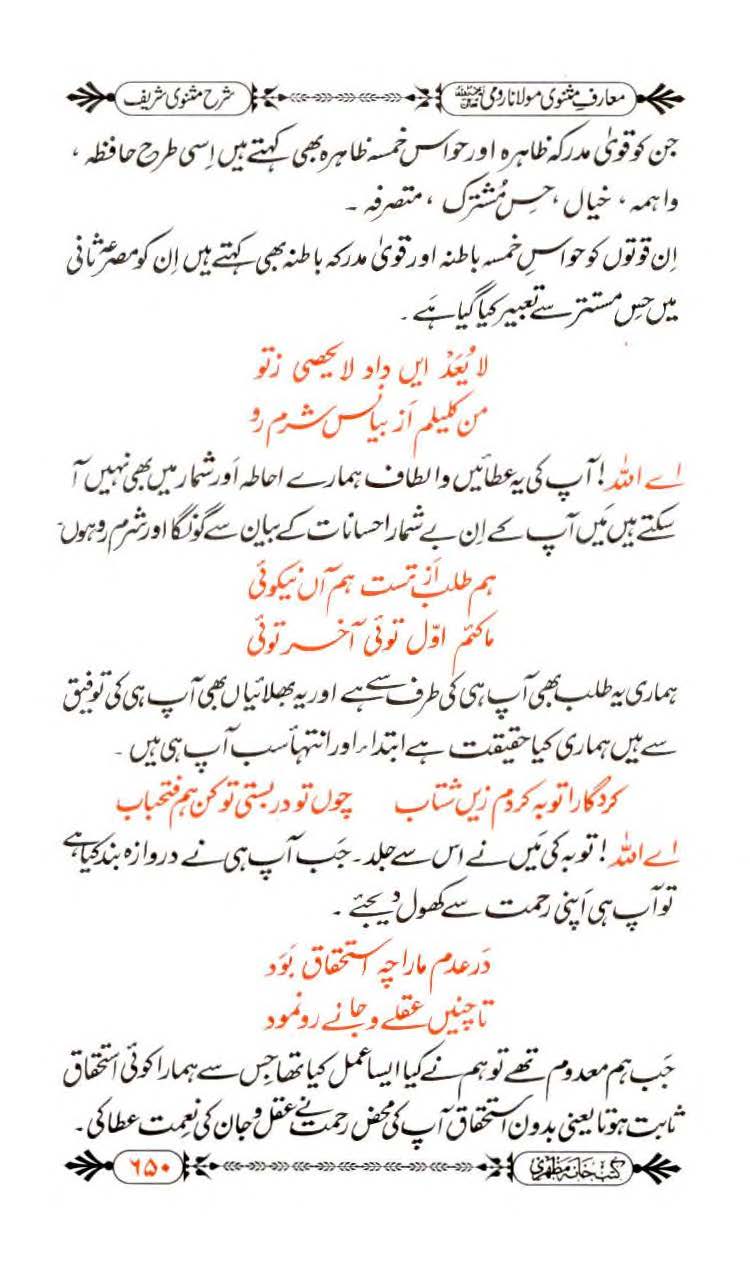 معارف مثنوی مولانا رومی رحمہ اللہ تعالیٰ
شرح مثنوی شریف
جن کو قویٰ مدرکہ ظاہرہ اور حواس خمسہ ظاہرہ بھی کہتے ہیں اِسی طرح حافظہ ،
واہمہ ، خیال ، حسِ مُشترک ، متصرفہ ۔
اِن قوتوں کو حواسِ خمسہ باطنہ اور قویٰ مدرکہ باطنہ بھی کہتے ہیں اِن کو مصرعِ ثانی
میں حسِ مستتر سے تعبیر کیا گیا ہے ۔
لا یُعَدْ ایں داد لا یحصی زتو
من کلیلم اَز بیانس شرم رو
اے اللہ ! آپ کی یہ عطائیں و الطاف ہمارے احاطہ اَور شمار میں بھی نہیں آ
سکتے ہیں مَیں آپ کے اِن بے شمار احسانات کے بیان سے گونگا اور شرم رو ہوں۔
ہم طلب اَز تست ہم آں نیکوئی
ما کئم اوّل توئی آخر توئی
ہماری یہ طلب بھی آپ ہی کی طرف سے ہے اور یہ بھلائیاں بھی آپ ہی کی توفیق
سے ہیں ہماری کیا حقیقت ہے ابتداء اور انتہا سب آپ ہی ہیں ۔
کردگارا توبہ کردم زیں شتاب چوں تو در بستی تو کن ہم فتحباب
اے اللہ ! توبہ کی مَیں نے اس سے جلد ۔ جَب آپ ہی نے دروازہ بند کیا ہے
تو آپ ہی اَپنی رحمت سے کھول دیجئے ۔
دَر عدم مارا چہ استحقاق بَوَد
تا چنیں عقلے و جانے رونمود
جَب ہم معدوم تھے تو ہم نے کیا ایسا عمل کیا تھا جِس سے ہمارا کوئی استحقاق
ثابت ہوتا یعنی بدون استحقاق آپ کی محض رحمت نے عقل و جان کی نِعمت عطا کی ۔
کتب خانہ مظہری
۶۵۰